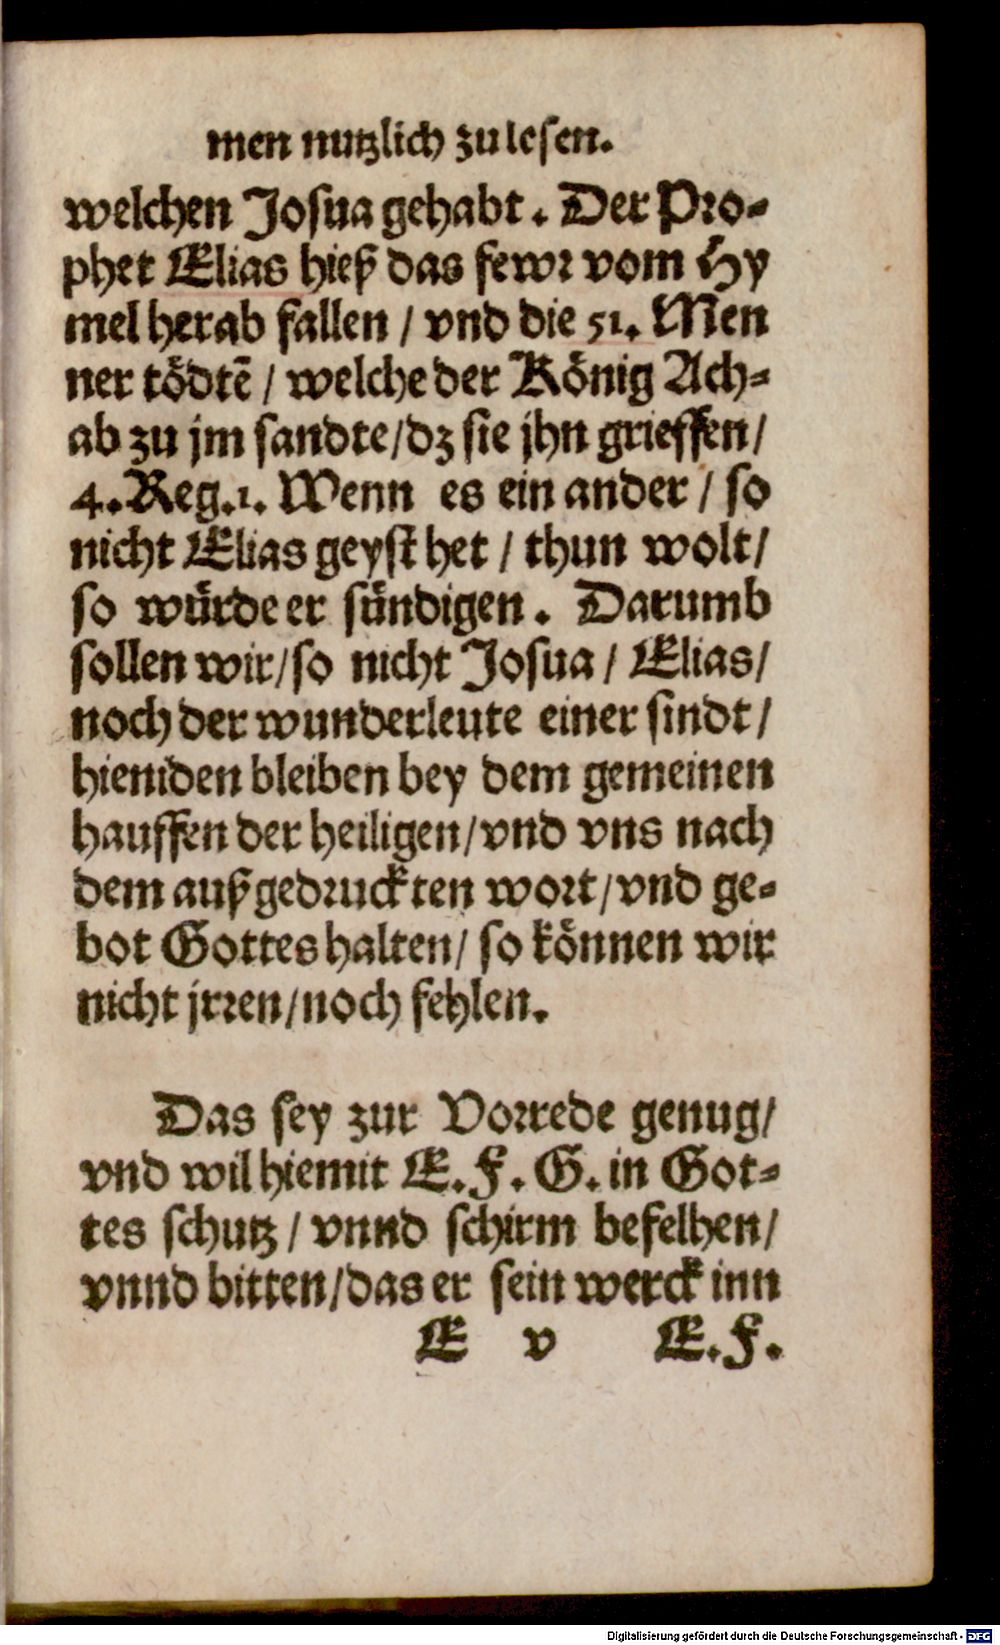 men nutzlich zu lesen.
welchen Josua gehabt. Der Pro-
phet Elias hieß das fewr vom Hy
mel herab fallen / vnd die 51. Men
ner tödtē / welche der König Ach-
ab zu jm sandte/dz sie jhn grieffen/
4. Reg.1. Wenn es ein ander / so
nicht Elias geyst het / thun wolt/
so würde er sündigen. Darumb
sollen wir/so nicht Josua / Elias/
noch der wunderleute einer sindt/
hieniden bleiben bey dem gemeinen
hauffen der heiligen/vnd vns nach
dem außgedruckten wort/vnd ge-
bot Gottes halten/ so können wir
nicht jrren/noch fehlen.
Das sey zur Vorrede genug/
vnd wil hiemit E. F. G. in Got-
tes schutz / vnnd schirm befelhen/
vnnd bitten/das er sein werck inn
E v E. F.
Digitalisierung gefördert durch die Deutsche Forschungsgemeinschaft - DFG